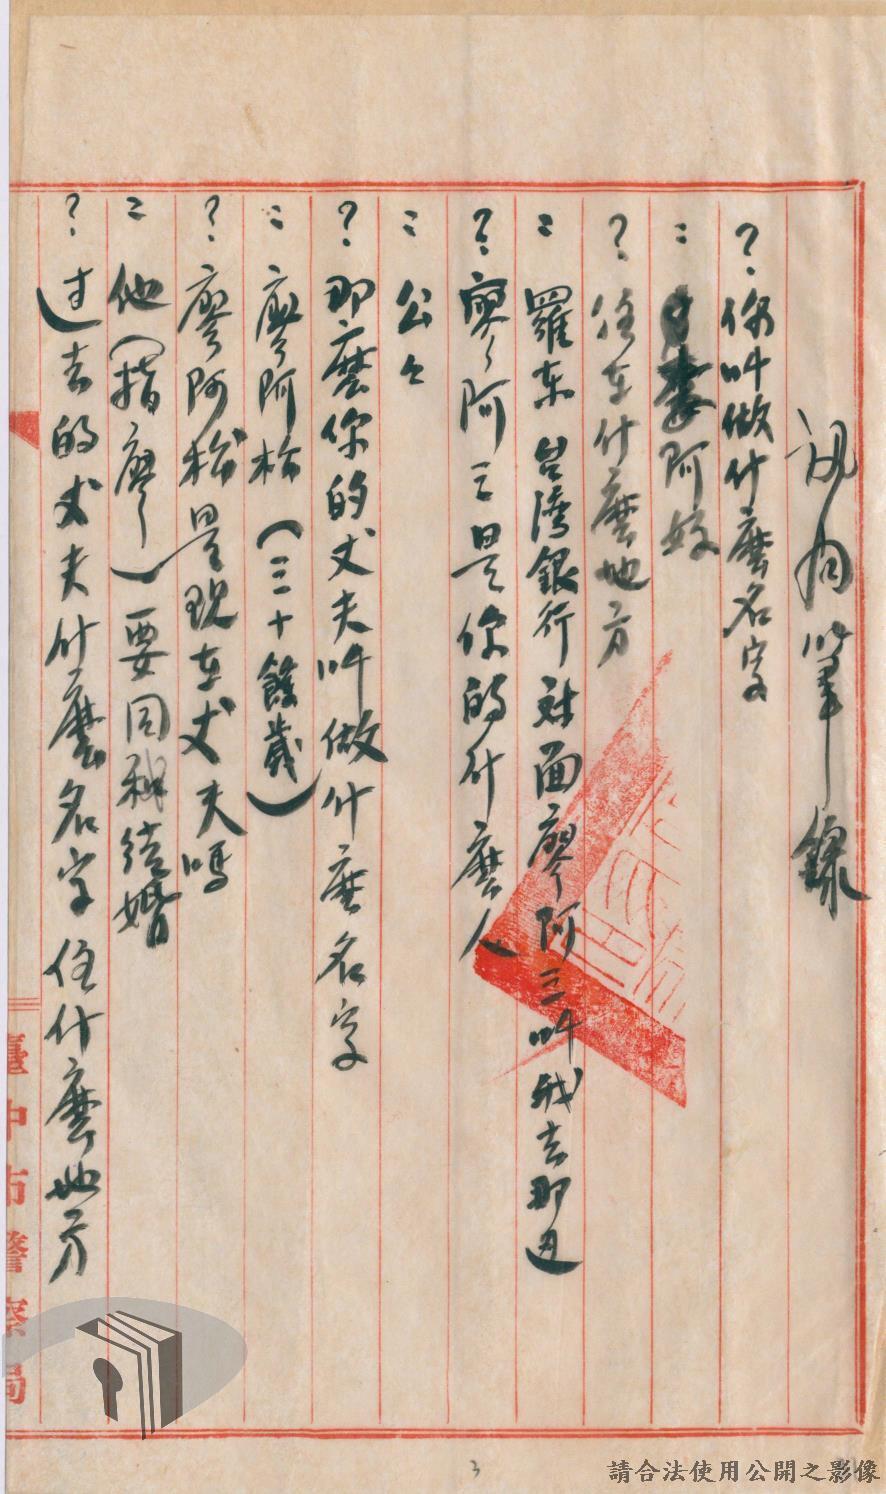 訊問筆錄
？你叫做什麼名字
：李阿好
？住在什麼地方
：羅东台湾銀行对面廖阿三叫我去那边
？廖阿三是你的什麼人
：公々
？那麼你的丈夫叫做什麼名字
：廖阿松（三十餘歲）
？廖阿松是現在丈夫嗎
：他（指廖）要同我结婚
？过去的丈夫什麼名字住什麼地方
臺中市警察局
3
請合法使用公開之影像